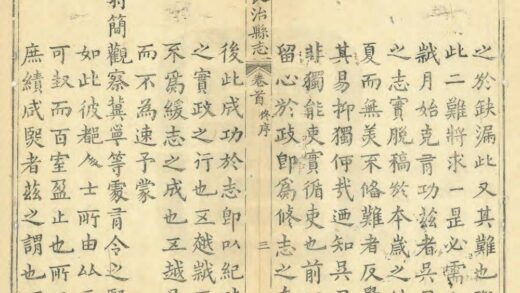 之於缺漏此又其難也
此二難將求一是必需
歲月始克有功茲者吳
之志實脫稿於本歲之
夏而無美不備難者反
其易抑獨何哉迺知吳
非獨能吏實循吏也前
留心於政即為修志之
治縣志 卷首 序 三
後此成功於志即以紀
之實政之行也五越歲
不為緩志之成也五越月
而不為速予蒙
特簡觀察冀寧等處有令之賢
如此彼都人士所由以
可封而百室盈止也所
庶績咸熙者茲之謂也